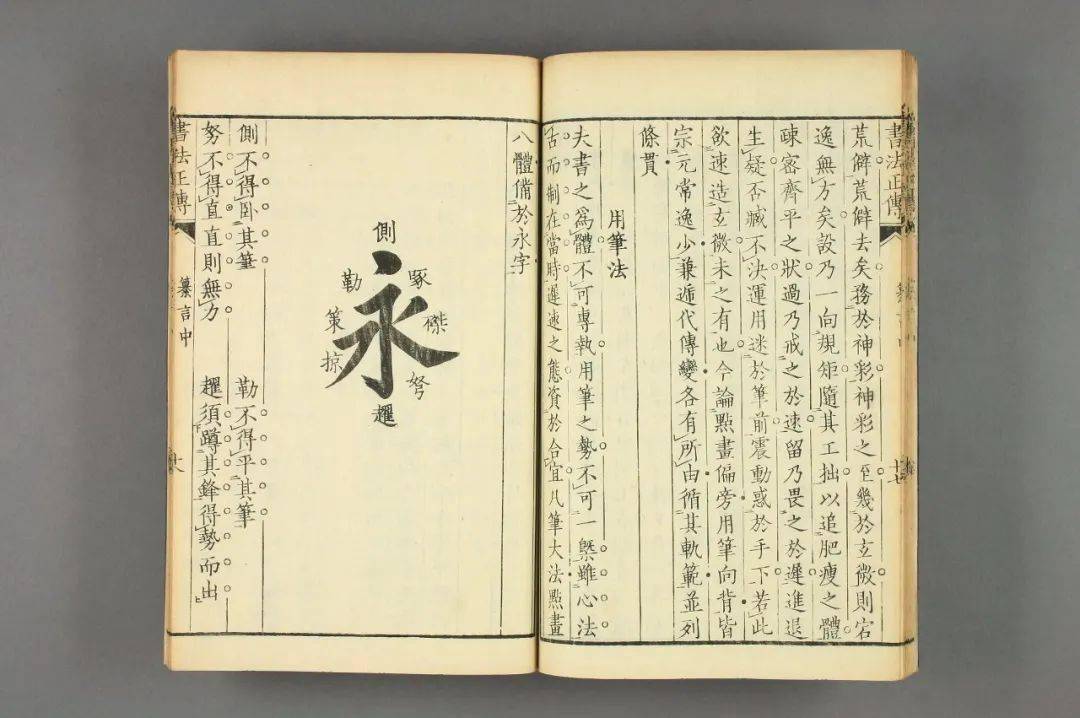 荒僻荒僻去矣務於神彩神彩之至幾於玄微則宕
逸無方矣設乃一向規矩隨其工拙以追肥瘦之體
疎密齊平之狀過乃戒之於速留乃畏之於遲進退
生疑否臧不決運用迷於筆前震動惑於手下若此
欲速造玄微未之有也今論點畫偏旁用筆向背皆
宗元常逸少兼遞代傳變各有所由循其軌範並列
條貫
用筆法
夫書之爲體不可專執用筆之勢不可一槩雖心法
古而制在當時遲速之態資於合宜凡筆大法點畫
書法正傳
十七
八體備於永字
側
勒
啄
策
永
磔
掠
弩
趯
側不得卧其筆
勒不得平其筆
努不得直直則無力
趯須蹲其鋒得勢而出
書法正傳
纂言中
十八